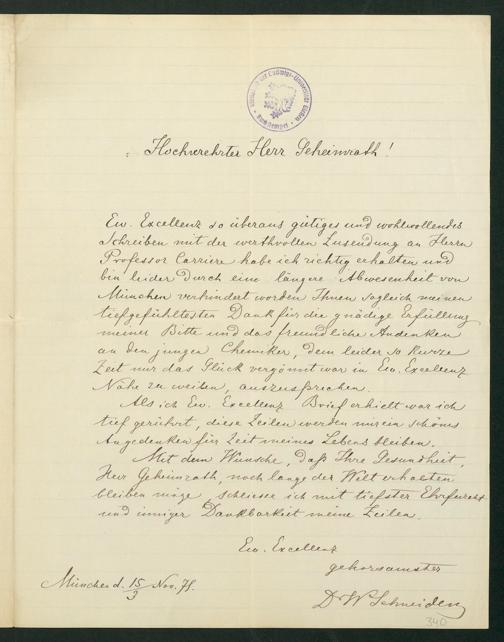 Hochverehrter Herr Geheimrath!
Ew. Excellenz so überaus gütiges und wohlwollendes
Schreiben mit der werthvollen Zusendung an Herrn
Professor Carriere habe ich richtig erhalten und
bin leider durch eine längere Abwesenheit von
München verhindert worden Ihnen sogleich meinen
tiefgefühltesten Dank für die gnädige Erfüllung
meiner Bitte und das freundliche Andenken
an den jungen Chemiker, dem leider so kurze
Zeit nur das Glück vergönnt war in Ew. Excellenz
Nähe zu weilen, auszusprechen.
Als ich Ew. Excellenz Brief erhielt war ich
tief gerührt, diese Zeilen werden mir ein schönes
Angedenken für Zeit meines Lebens bleiben.
Mit dem Wunsche, daß Ihre Gesundheit,
Herr Geheimrath, noch lange der Welt erhalten
bleiben möge, schliesse ich mit tiefster Ehrfurcht
und inniger Dankbarkeit meine Zeilen.
Ew. Excellenz
gehorsamster
München d. 15/9 Nov. 71.
Dr W Schneider
340